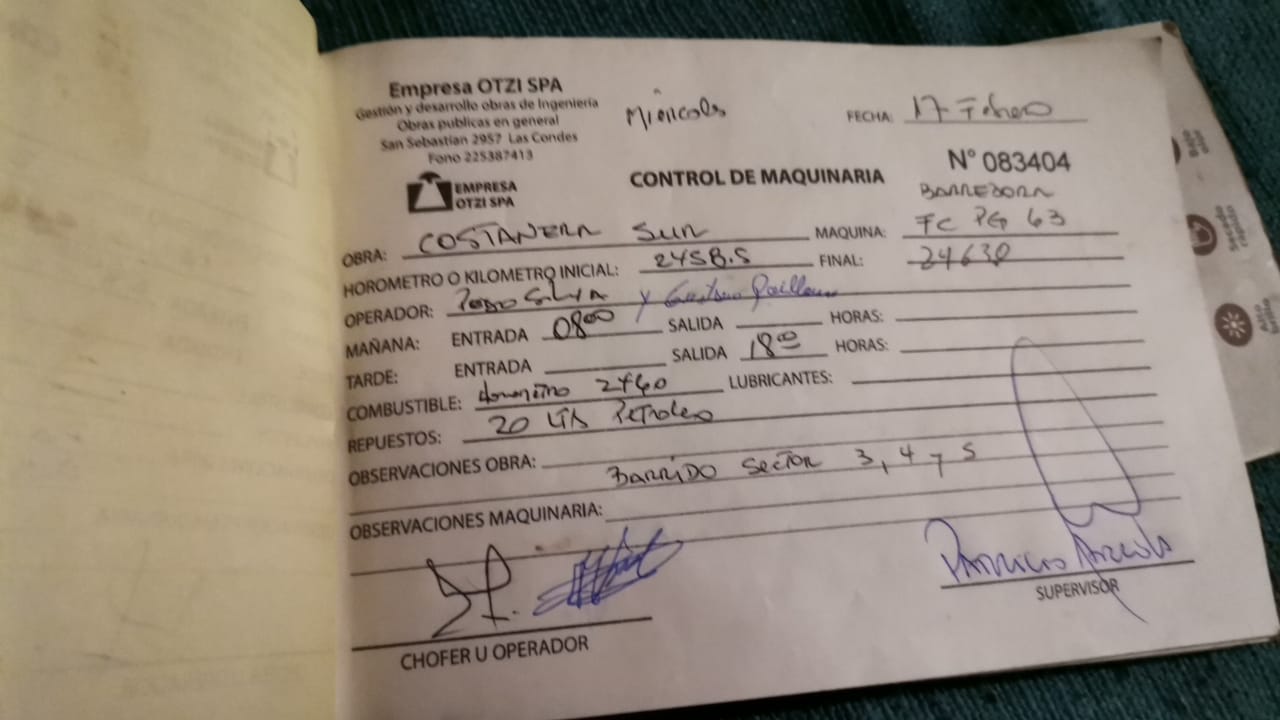 Empresa OTZI SPA
Gestión y desarrollo obras de Ingeniería
Obras publicas en general
San Sebastian 2957 Las Condes
Fono 225387413
EMPRESA
OTZI SPA
Miércoles
FECHA: 17 Febrero
N° 083404
CONTROL DE MAQUINARIA
BARREDORA
OBRA: COSTANERA SUR MAQUINA: FC PG 63
HOROMETRO O KILOMETRO INICIAL: 2458.5 FINAL: 24630
OPERADOR: Pedro Silva y Gustavo
MAÑANA: ENTRADA 08:00 SALIDA HORAS:
TARDE: ENTRADA SALIDA 18:00 HORAS:
COMBUSTIBLE: Horometro 2460 LUBRICANTES:
REPUESTOS: 20 Lts Petroleo
OBSERVACIONES OBRA:
Barrido Sector 3, 4 y 5
OBSERVACIONES MAQUINARIA:
CHOFER U OPERADOR
Patricio
SUPERVISOR